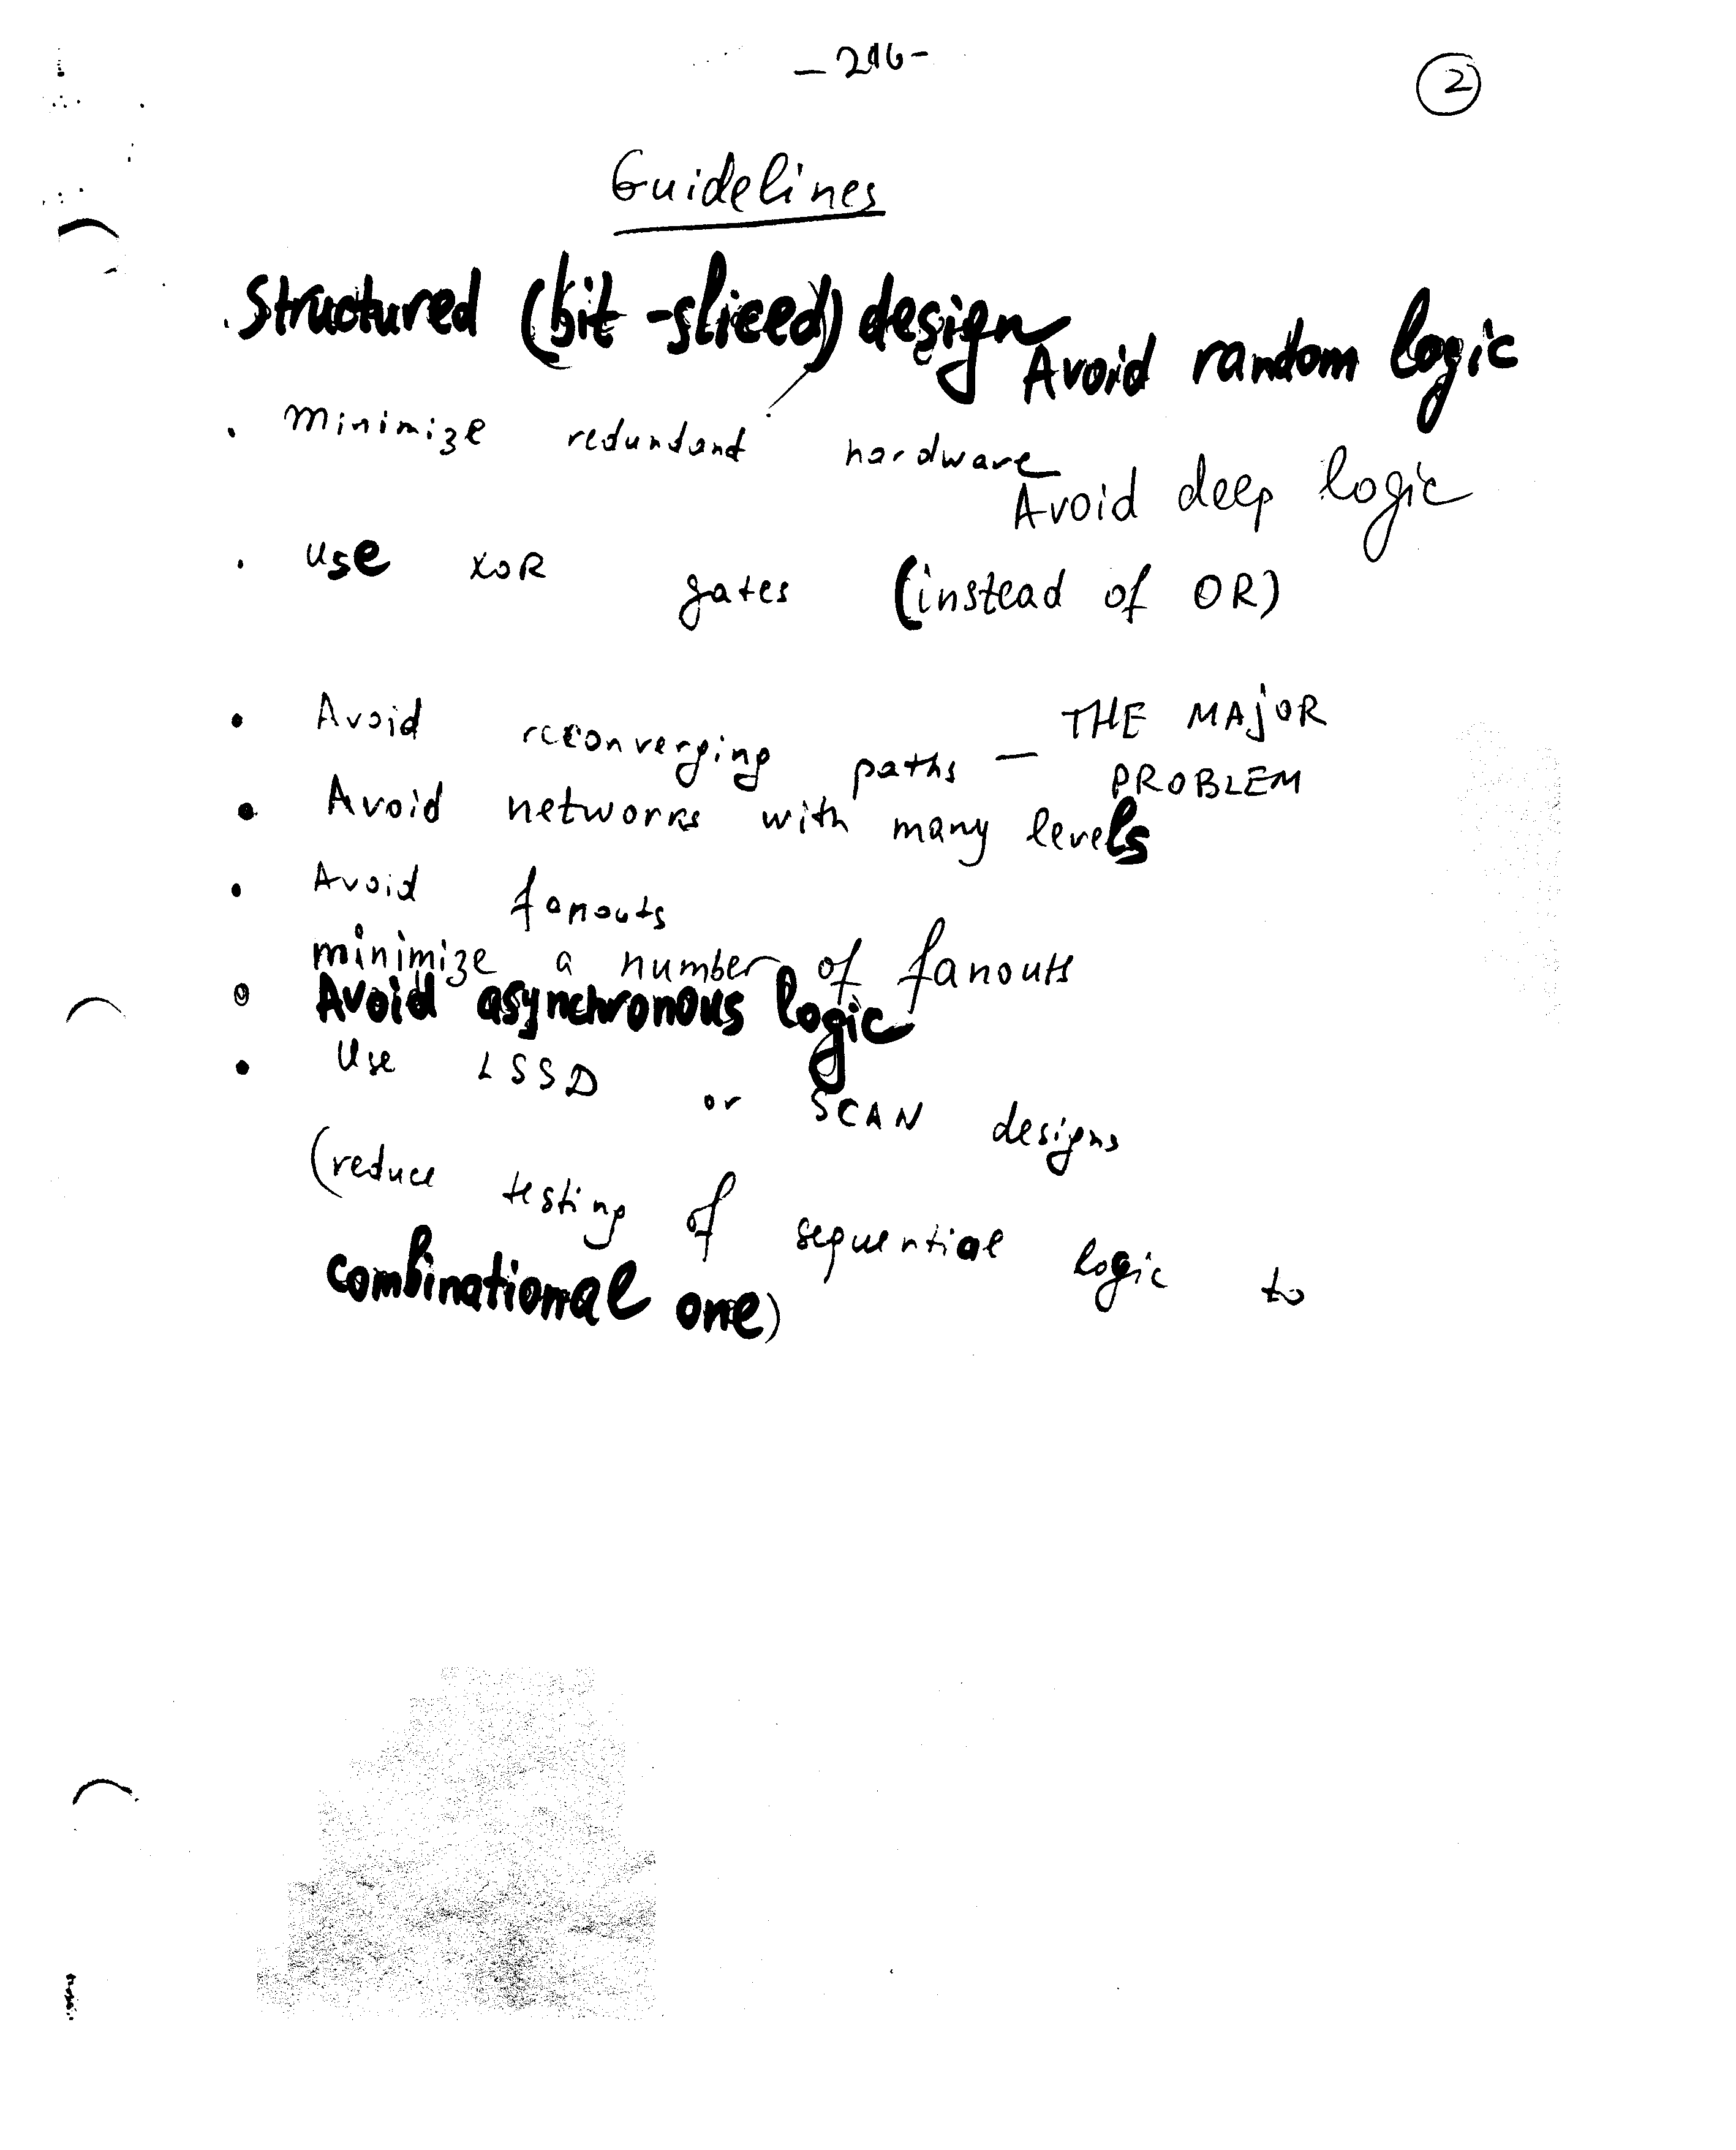 - 216 -
2
Guidelines
. Structured (bit-sliced) design Avoid random logic
. minimize redundant hardware
Avoid deep logic
. use XOR gates (instead of OR)
• Avoid reconverging paths — THE MAJOR
PROBLEM
• Avoid networks with many levels
• Avoid fanouts
minimize a number of fanouts
• Avoid asynchronous logic
• Use LSSD or SCAN designs
(reduce testing of sequential logic to
combinational one)